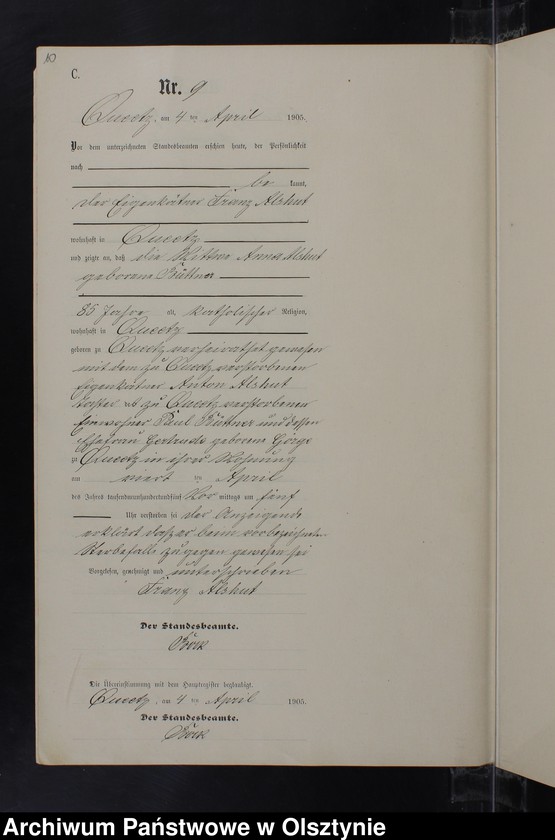 10
C.
Nr. 9
Queetz, am 4 ten April 1905.
Vor dem unterzeichneten Standesbeamten erschien heute, der Persönlichkeit
nach
be kannt,
der Eigenkätner Franz Alshut
wohnhaft in Queetz
und zeigte an, daß die Wittwe Anna Alshut
geborene Büttner
85 Jahre alt, katholischer Religion,
wohnhaft in Queetz
geboren zu Queetz verheirathet gewesen
mit dem zu Queetz verstorbenen
Eigenkätner Anton Alshut
Tochter des zu Queetz verstorbenen
Einwohner Paul Büttner und dessen
Ehefrau Gertrude geborene
zu Queetz in ihrer Wohnung
am viert ten April
des Jahres tausendneunhundertundfünf Vor mittags um fünf
Uhr verstorben sei der Anzeigende
erklärt daß er beim vorbezeichneten
Sterbefalle zugegen gewesen sei
Vorgelesen, genehmigt und unterschrieben
Franz Alshut
Der Standesbeamte.
Die Übereinstimmung mit dem Hauptregister beglaubigt.
Queetz, am 4 ten April 1905.
Der Standesbeamte.
Archiwum Państwowe w Olsztynie